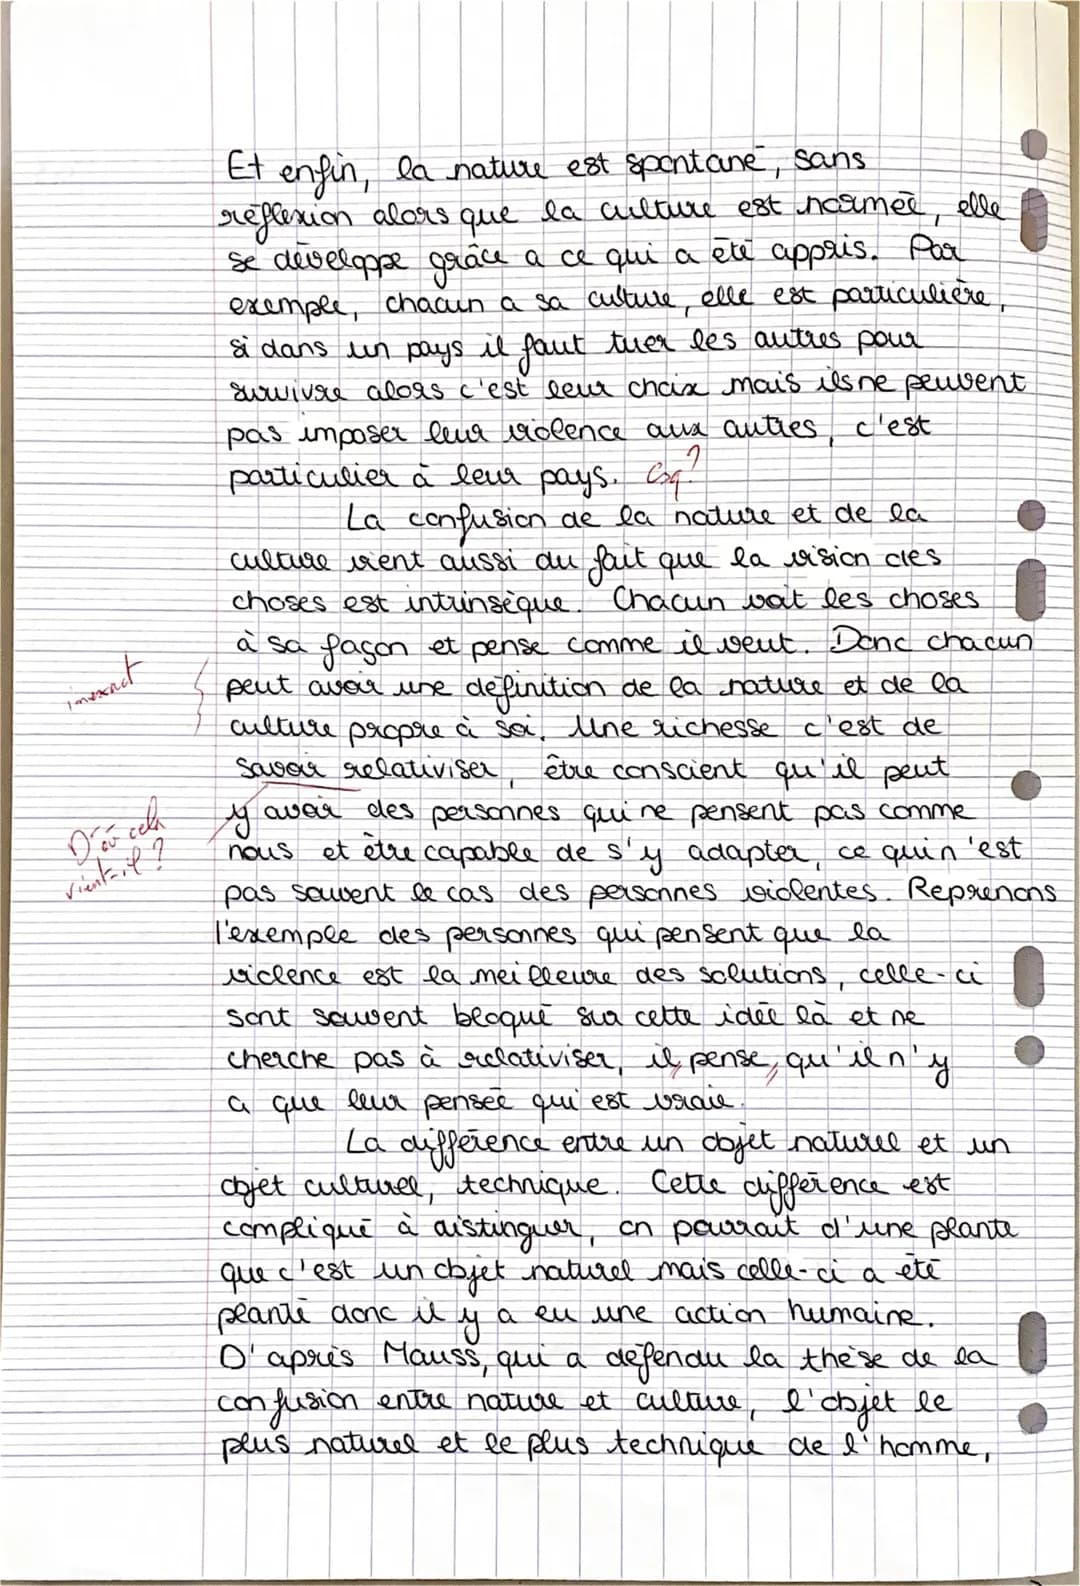 Et enfin, la nature est spontané, sans
réflexion alors que la culture est normée, elle
se développe grâce a ce qui a été appris. Par
exemple, chacun a sa culture, elle est particulière,
si dans un pays il faut tuer les autres pour
survivre alors c'est leur choix mais ils ne peuvent
pas imposer leur violence aux autres, c'est
particulier à leur pays. Csq?
La confusion de la nature et de la
culture vient aussi du fait que la vision des
choses est intrinsèque. Chacun voit les choses
à sa façon et pense comme il veut. Donc chacun
inexact
peut avoir une définition de la nature et de la
culture propre à soi. Une richesse c'est de
savoir relativiser, être conscient qu'il peut
y avoir des personnes qui ne pensent pas comme
D'où cela
vient-il ?
nous et être capable de s'y adapter, ce qui n'est
pas souvent le cas des personnes violentes. Reprenons
l'exemple des personnes qui pensent que la
violence est la meilleure des solutions, celle-ci
sont souvent bloqué sur cette idée là et ne
cherche pas à relativiser, il pense, qu'il n'y
a que leur pensée qui est vraie.
La différence entre un objet naturel et un
objet culturel, technique. Cette différence est
compliqué à distinguer, on pourrait d'une plante
que c'est un objet naturel mais celle-ci a été
planté donc il y a eu une action humaine.
D'après Mauss, qui a défendu la thèse de la
confusion entre nature et culture, l'objet le
plus naturel et le plus technique de l'homme,